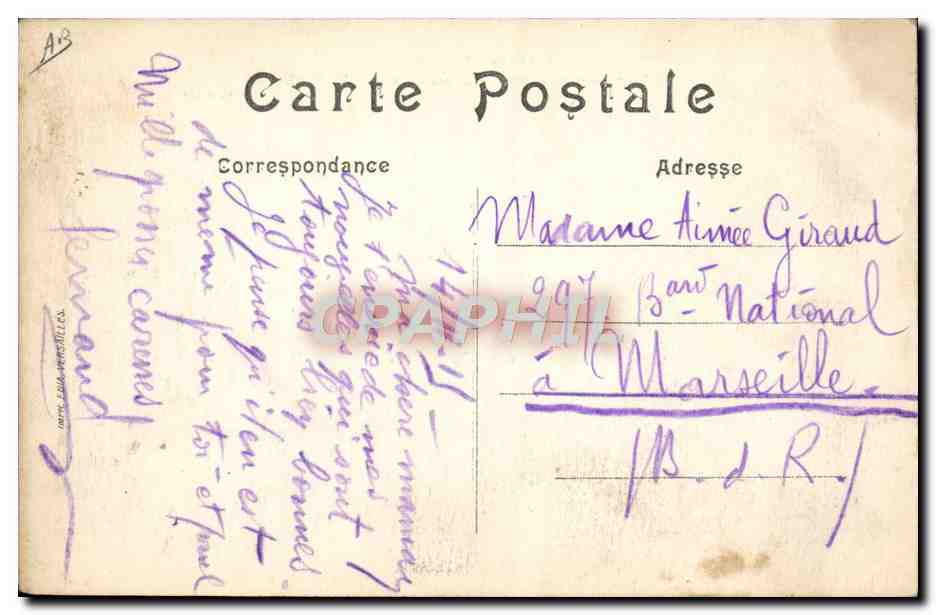 A.B
Carte Postale
Correspondance
Adresse
Ma chère maman
Je t'envoie de mes
nouvelles qui sont
toujours très bonnes
Je pense qu'il en est
de meme pour toi et
Mille poou caresses
Fernand
Madame Aimée Giraud
297 Bard National
à Marseille.
(B. d. R.)
IMPR. EDIA VERSAILLES.
CPAPHIL